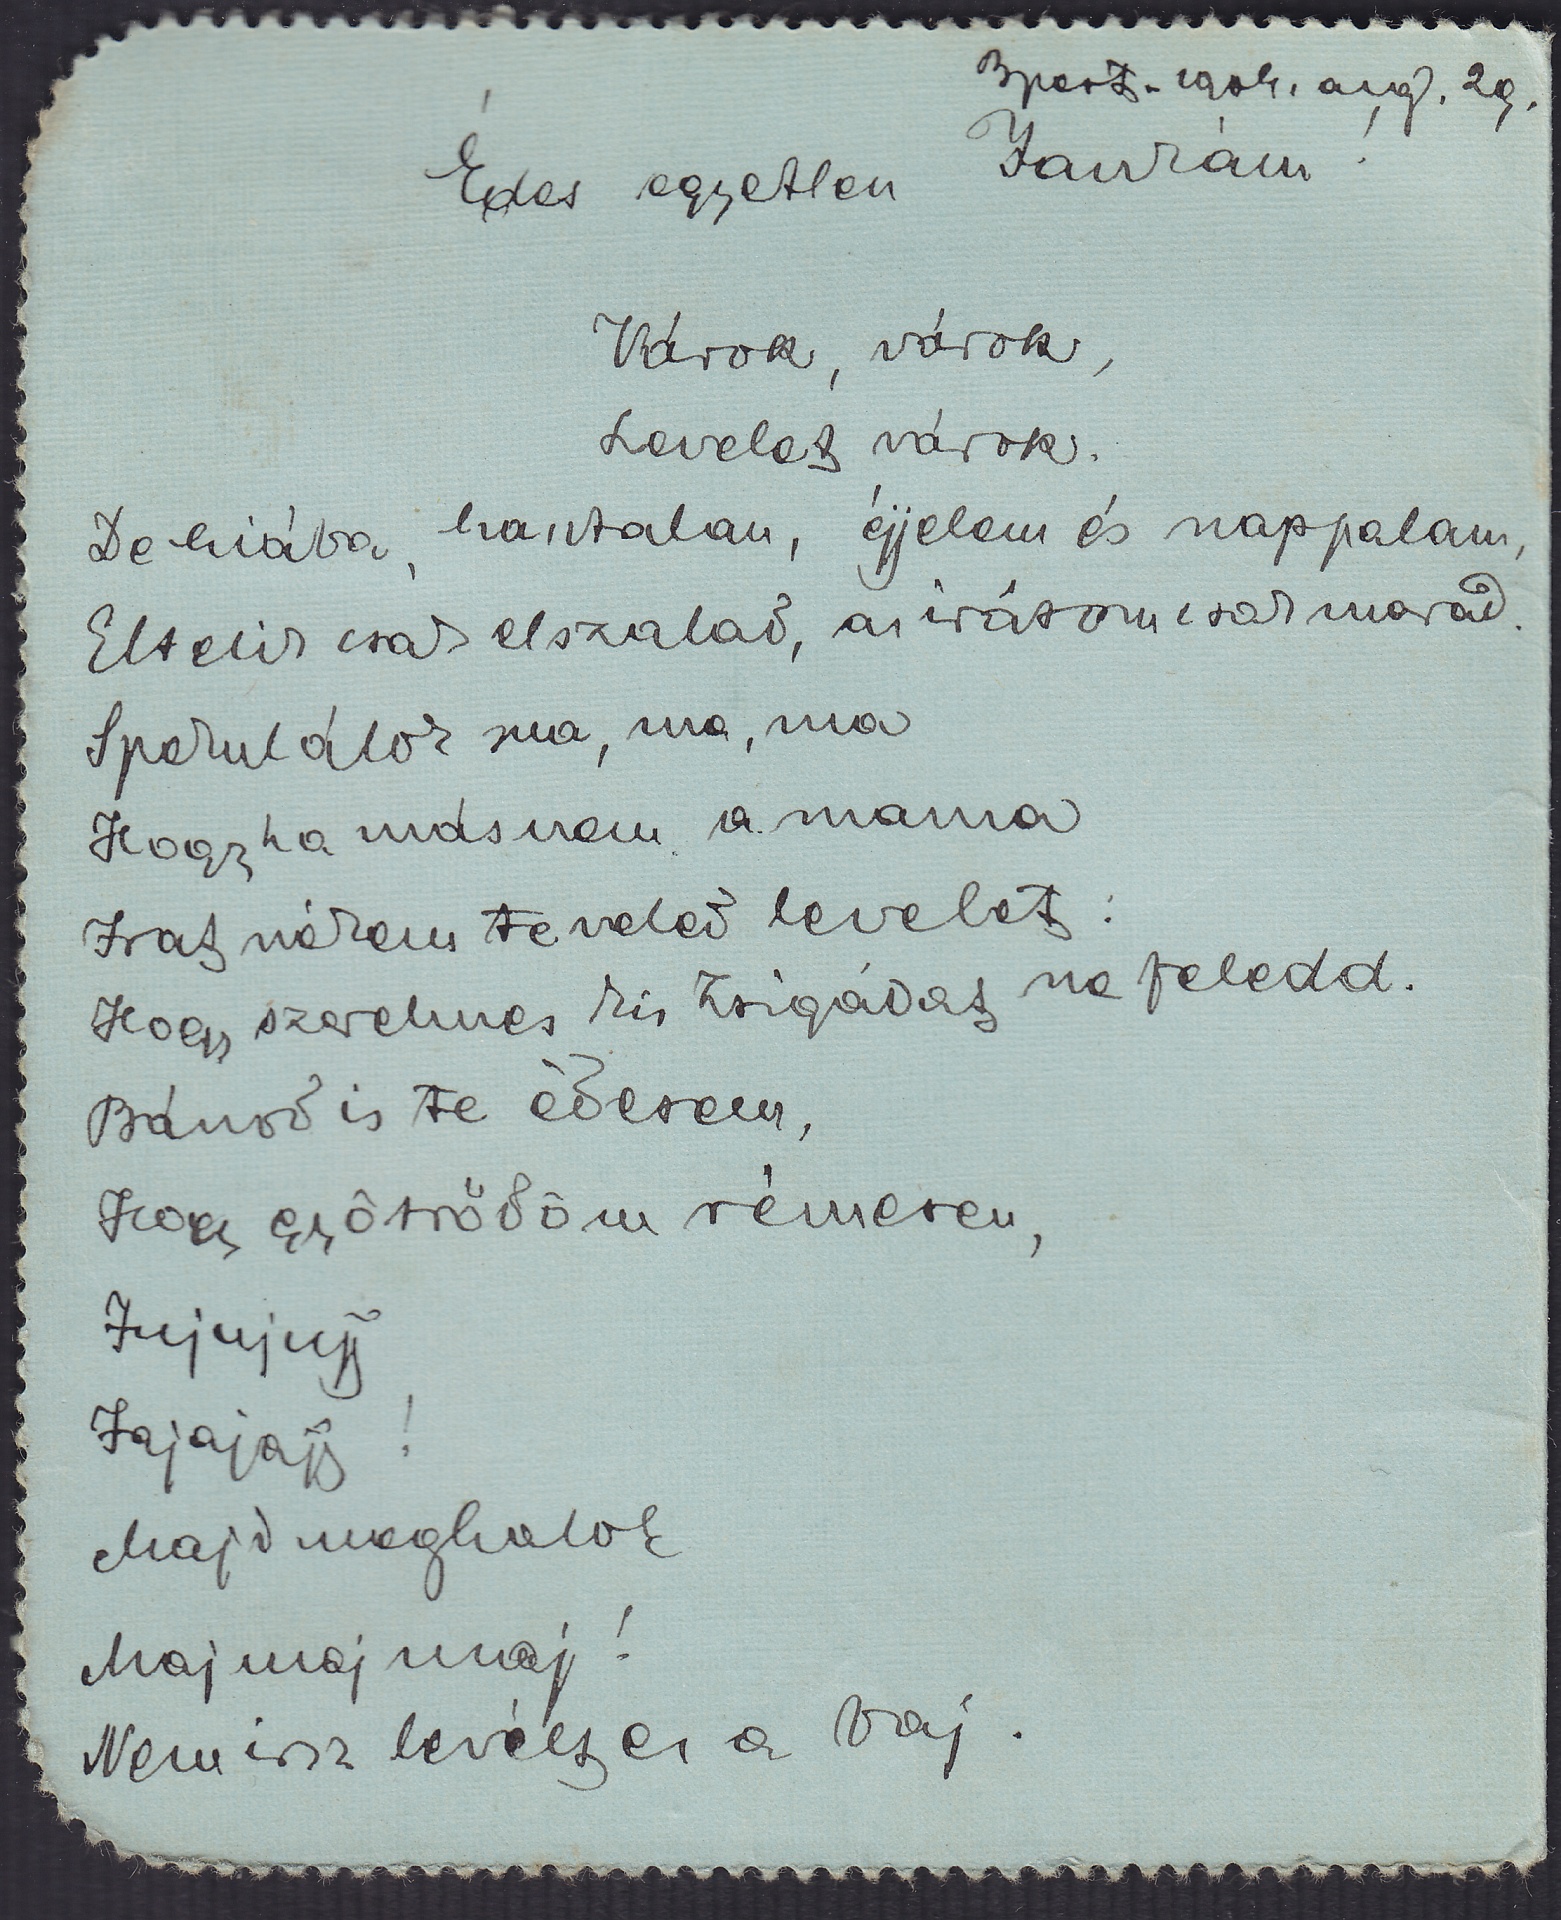 Bpest. 1904. aug. 29.
Édes egyetlen Jankám!
Várok, várok,
Levelet várok.
De hiába, hasztalan, éjjelem és nappalom,
Eltelik csak elszalad, az irásom csak marad.
Spekulálok ma, ma, ma
Hogy ha másnem a mama
Irat vélem te veled levelet:
Hogy szerelmes kis Zsigádat ne feledd.
Bánod is te édesem,
Hogy gyötrődöm rémesen,
Jujujujj
Jajajajj!
Majd meghalok
Maj maj maj!
Nem irsz levélt ez a baj.